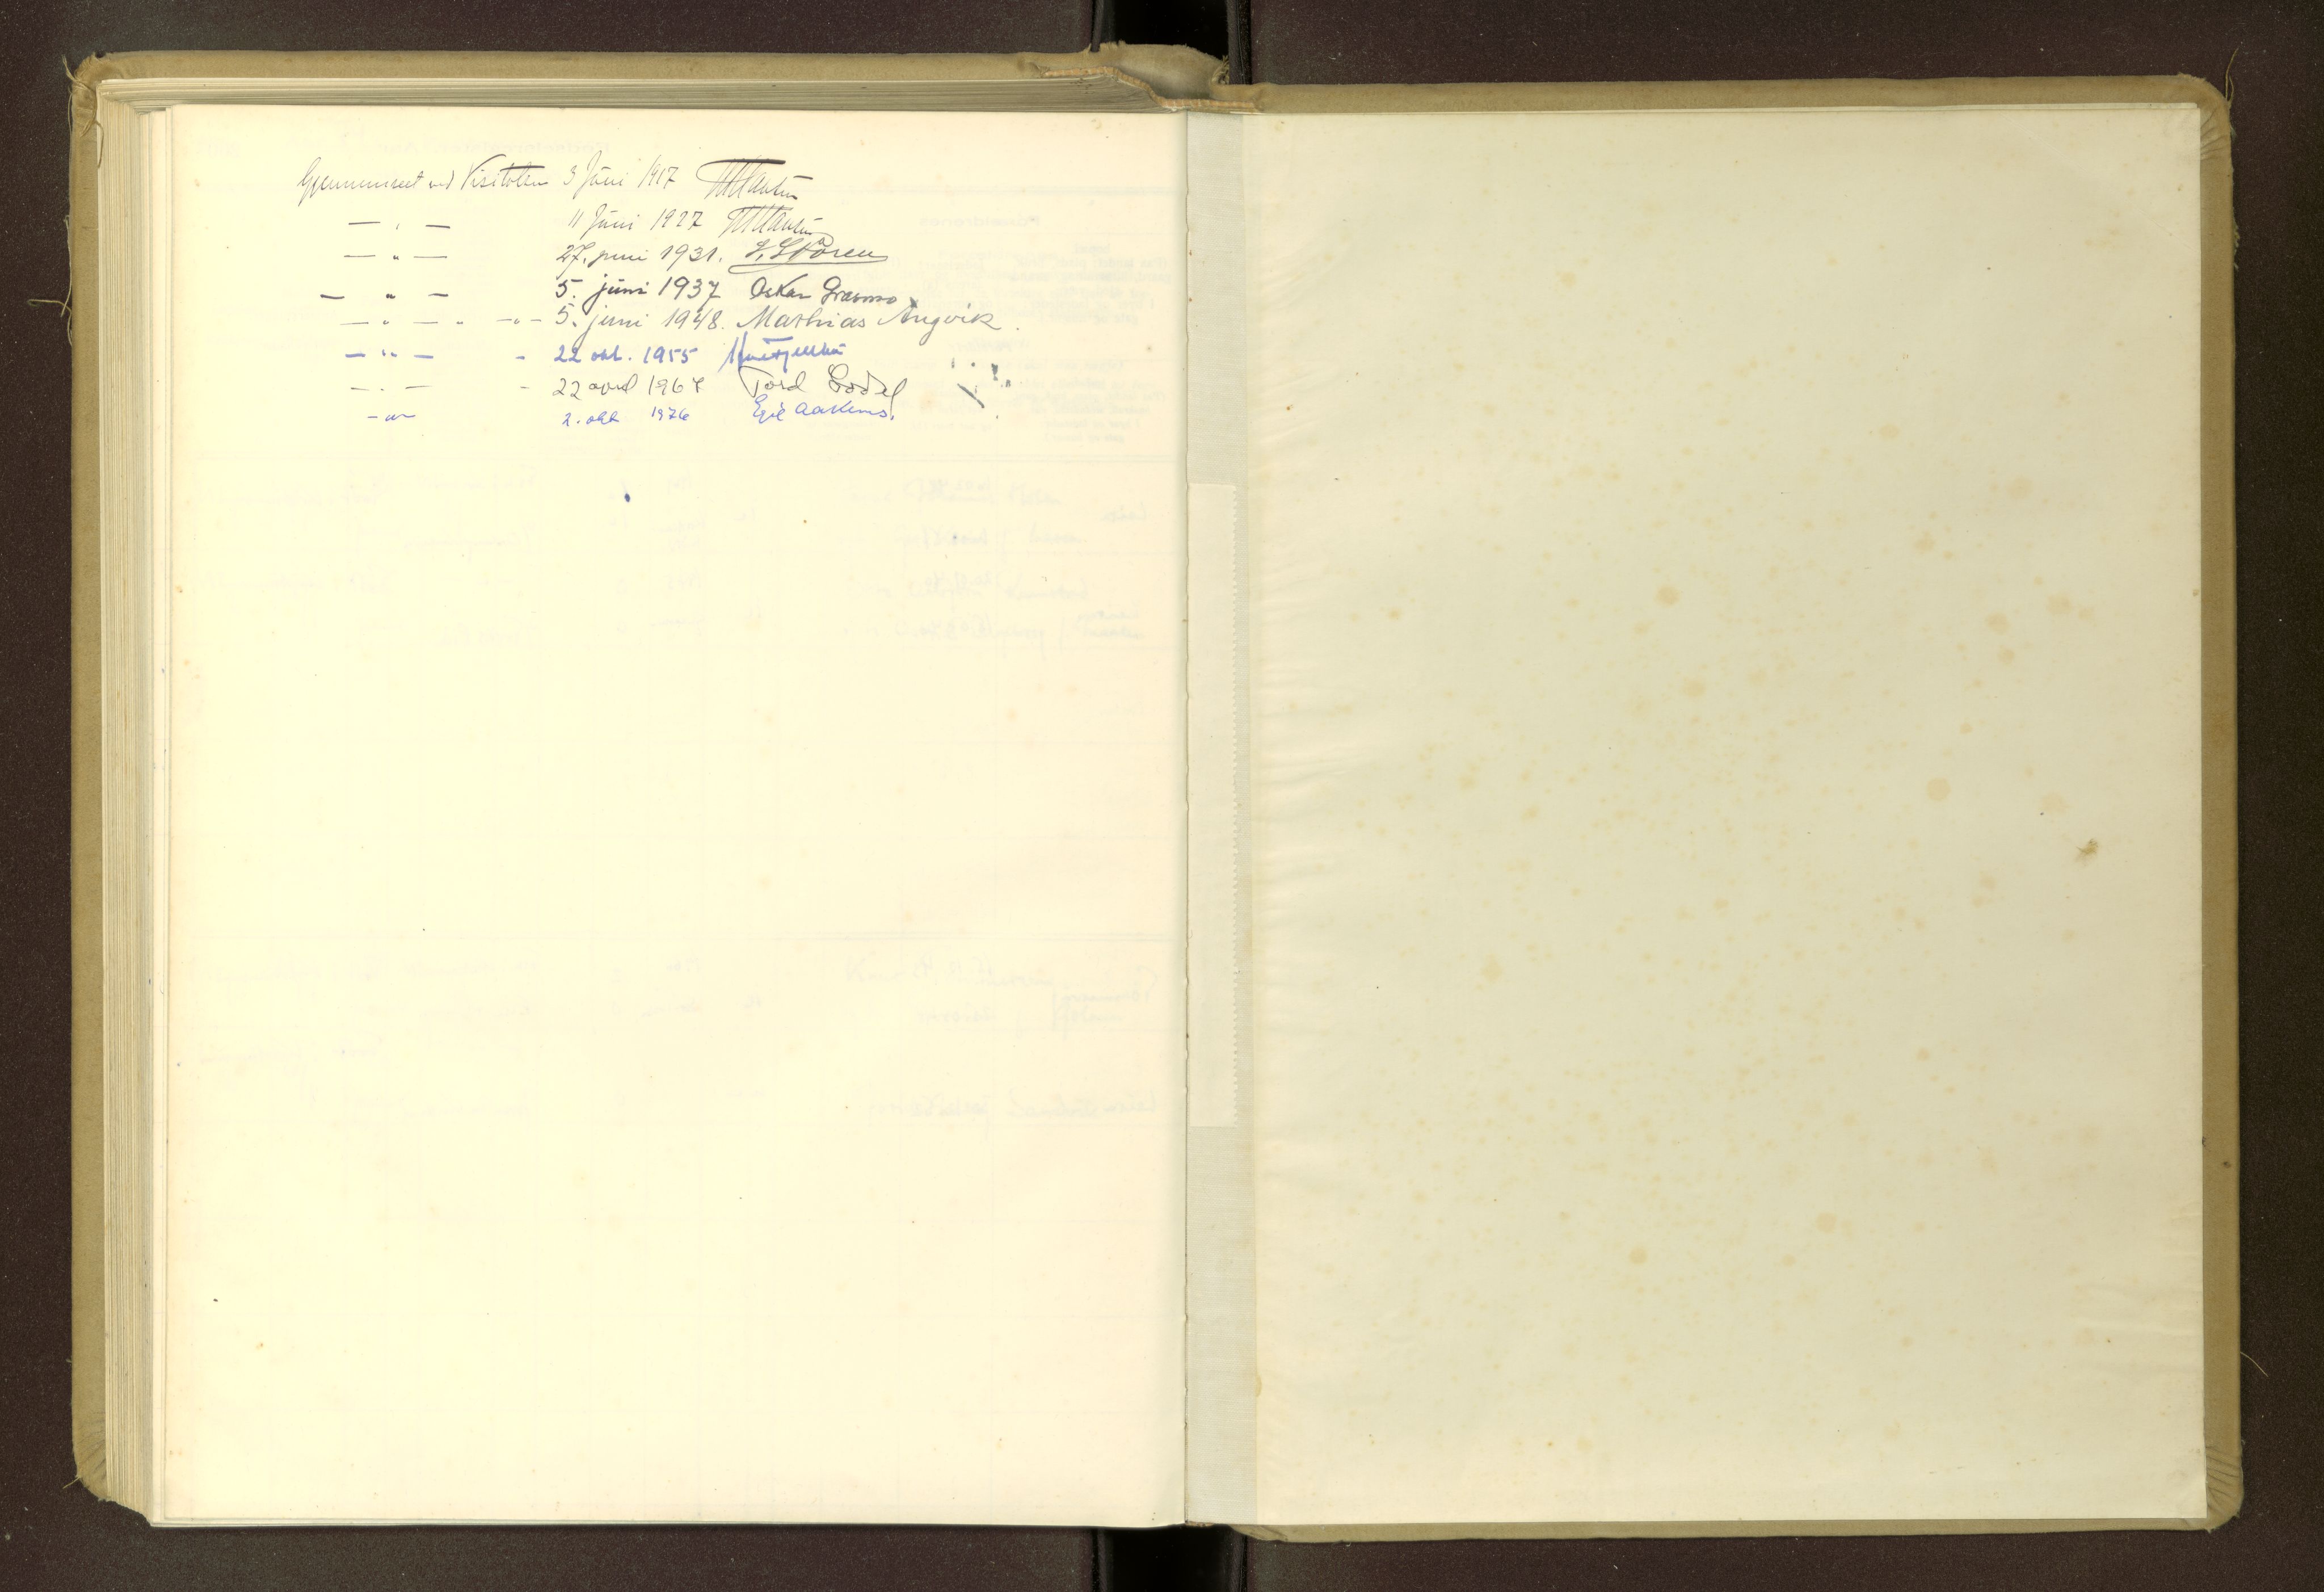 Gjennemseet ved Visitatsen 3 Juni 1917
— " — 11 Juni 1927
— " — 27. juni 1931. J. Stören
— " — 5. juni 1937 Oskar
— " — " — " — 5. juni 1948. Mathias Angvik.
— " — - 22 okt. 1955
— " — - 22 april 1967 Tord Godal
— " — 2. okt 1976 Egil Aarhus.